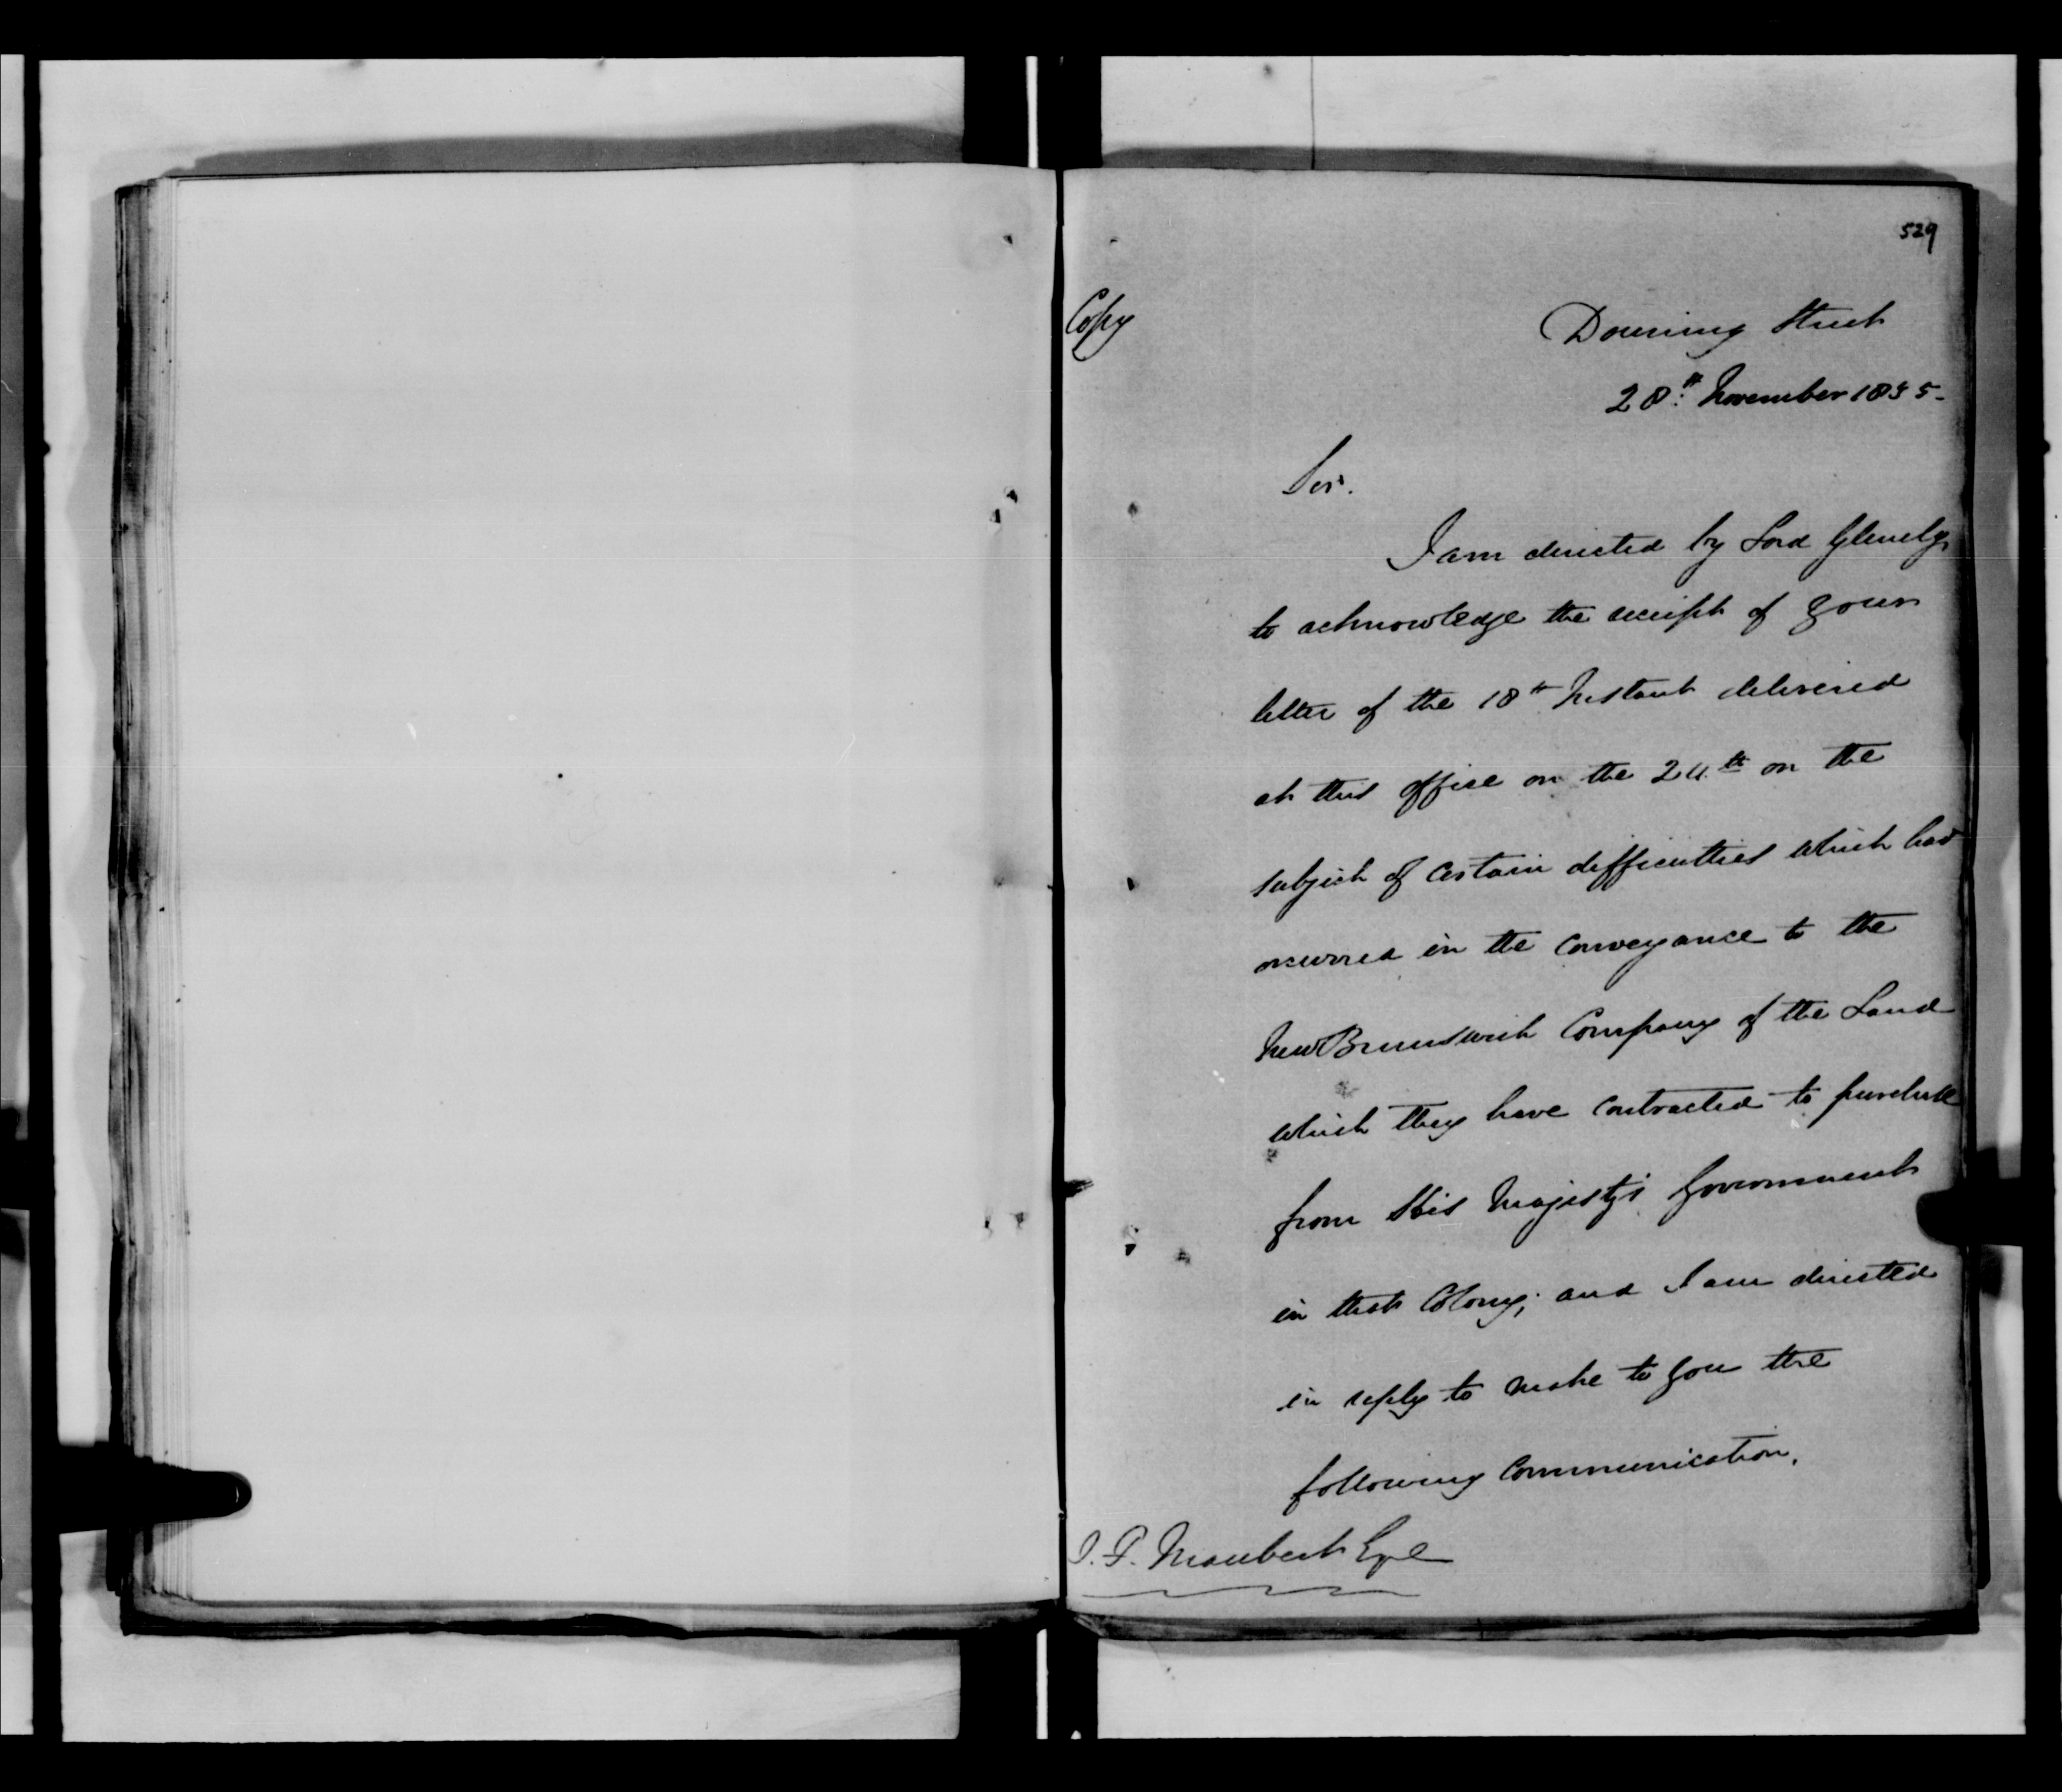 529
Copy
Downing Street
28th November 1835.
Sir.
I am directed by Lord Glenelg
to acknowledge the receipt of your
letter of the 18th Instant delivered
at this office on the 24th on the
subject of certain difficulties which had
occurred in the Conveyance to the
New Brunswick Company of the Land
which they have contracted to purchase
from His Majesty's Government
in that Colony; and I am directed
in reply to make to you the
following Communication.
Maubert Esqe